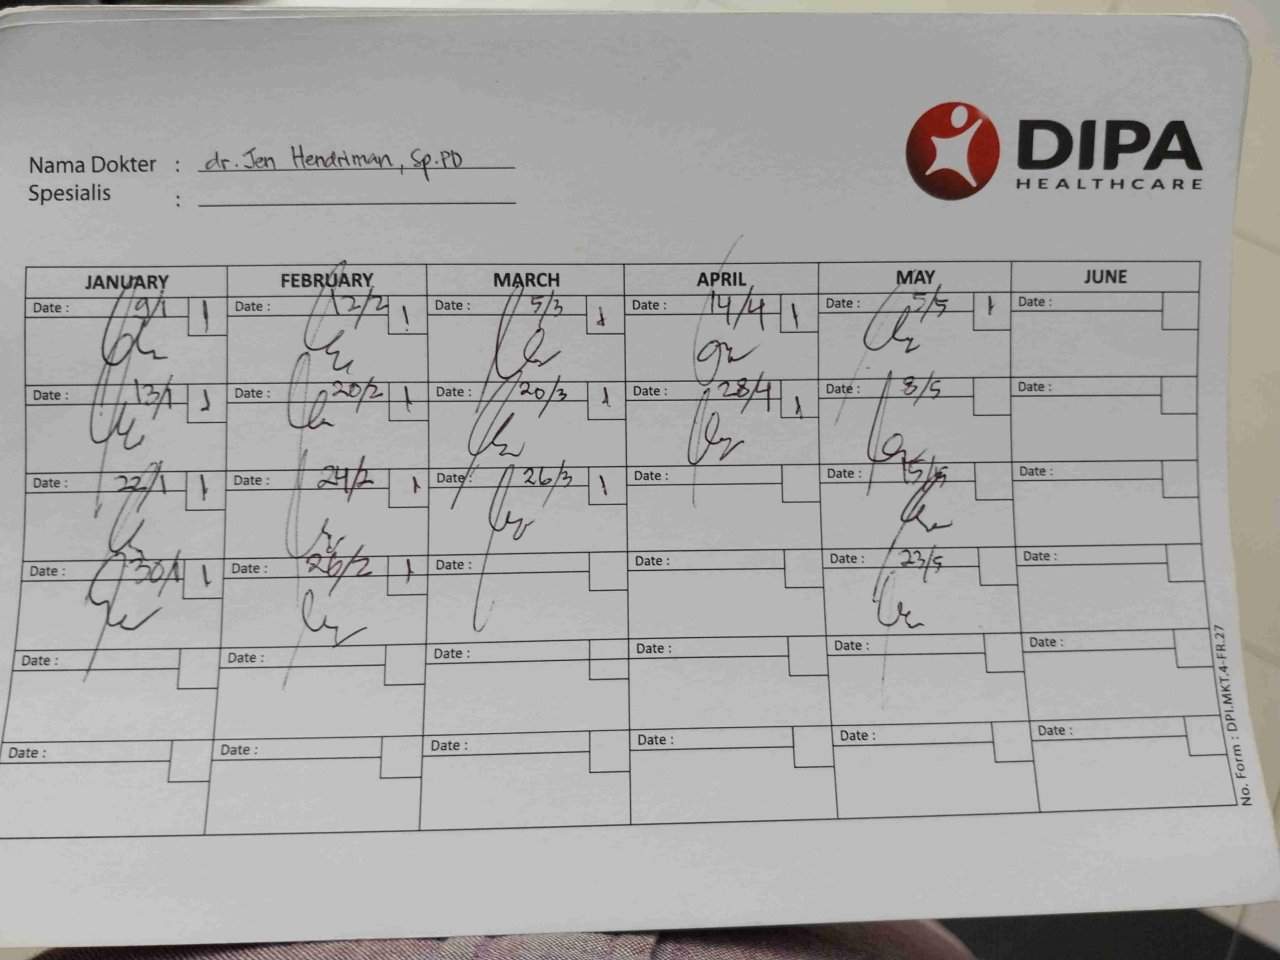 DIPA
HEALTHCARE
Nama Dokter : dr. Jen Hendriman, Sp.PD
Spesialis :
JANUARY FEBRUARY MARCH APRIL MAY JUNE
Date : 9/1 1 Date : 12/2 1 Date : 5/3 1 Date : 14/4 1 Date : 5/5 1 Date :
Date : 13/1 1 Date : 20/2 1 Date : 20/3 1 Date : 28/4 1 Date : 8/5 Date :
Date : 22/1 1 Date : 24/2 1 Date : 26/3 1 Date : Date : 15/5 Date :
Date : 30/1 1 Date : 26/2 1 Date : Date : Date : 23/5 Date :
Date : Date : Date : Date : Date : Date :
Date : Date : Date : Date : Date : Date :
No. Form : DPI.MKT.4-FR.27